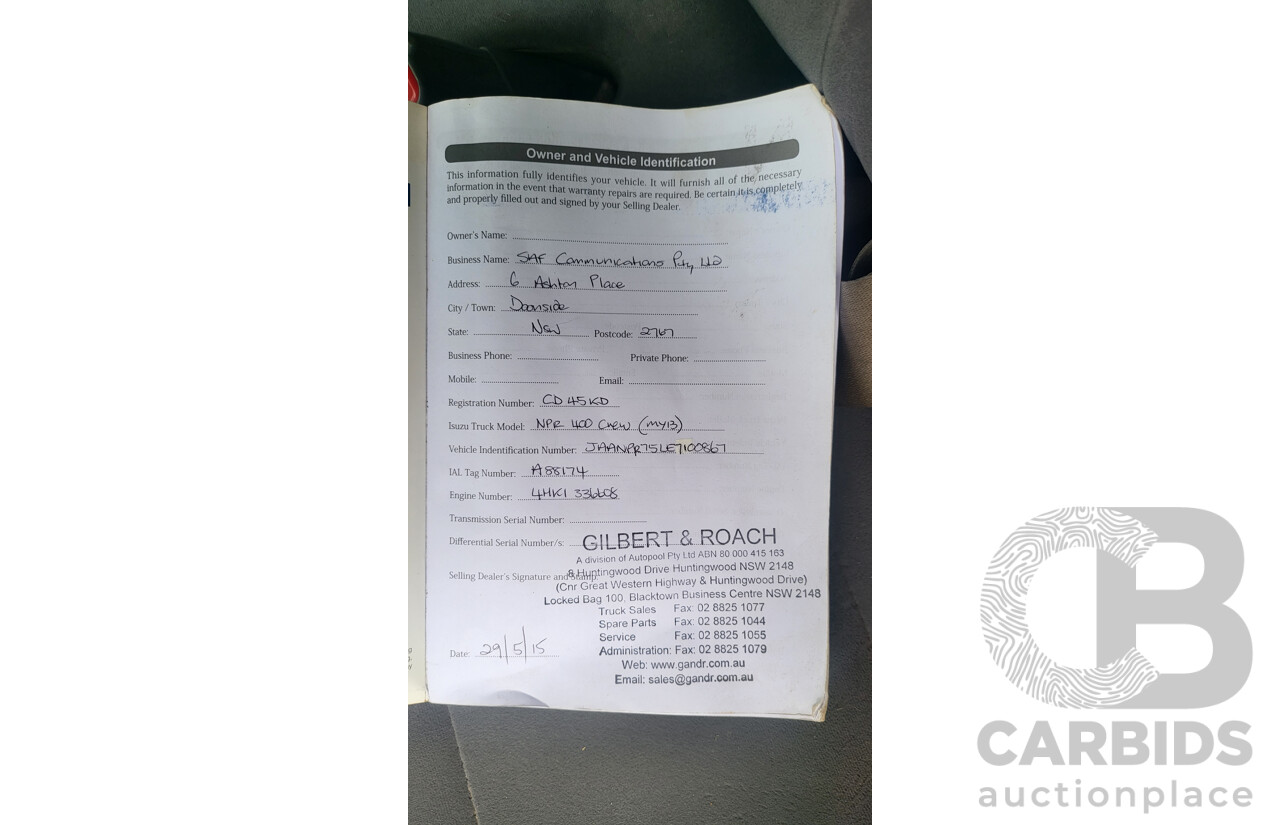 Owner and Vehicle Identification
This information fully identifies your vehicle. It will furnish all of the necessary
information in the event that warranty repairs are required. Be certain it is completely
and properly filled out and signed by your Selling Dealer.
Owner's Name:
Business Name: SAF Communications Pty Ltd
Address: 6 Ashton Place
City / Town: Doonside
State: NSW Postcode: 2767
Business Phone: Private Phone:
Mobile: Email:
Registration Number: CD 45 KD
Isuzu Truck Model: NPR 400 Crew (MY13)
Vehicle Indentification Number: JAANPR75LE7100867
IAL Tag Number: A88174
Engine Number: 4HK1 336608
Transmission Serial Number:
Differential Serial Number/s:
GILBERT & ROACH
A division of Autopool Pty Ltd ABN 80 000 415 163
8 Huntingwood Drive Huntingwood NSW 2148
Selling Dealer's Signature and Stamp:
(Cnr Great Western Highway & Huntingwood Drive)
Locked Bag 100, Blacktown Business Centre NSW 2148
Truck Sales Fax: 02 8825 1077
Spare Parts Fax: 02 8825 1044
Service Fax: 02 8825 1055
Administration: Fax: 02 8825 1079
Web: www.gandr.com.au
Email: sales@gandr.com.au
Date: 29/5/15
CB
CARBIDS
auctionplace